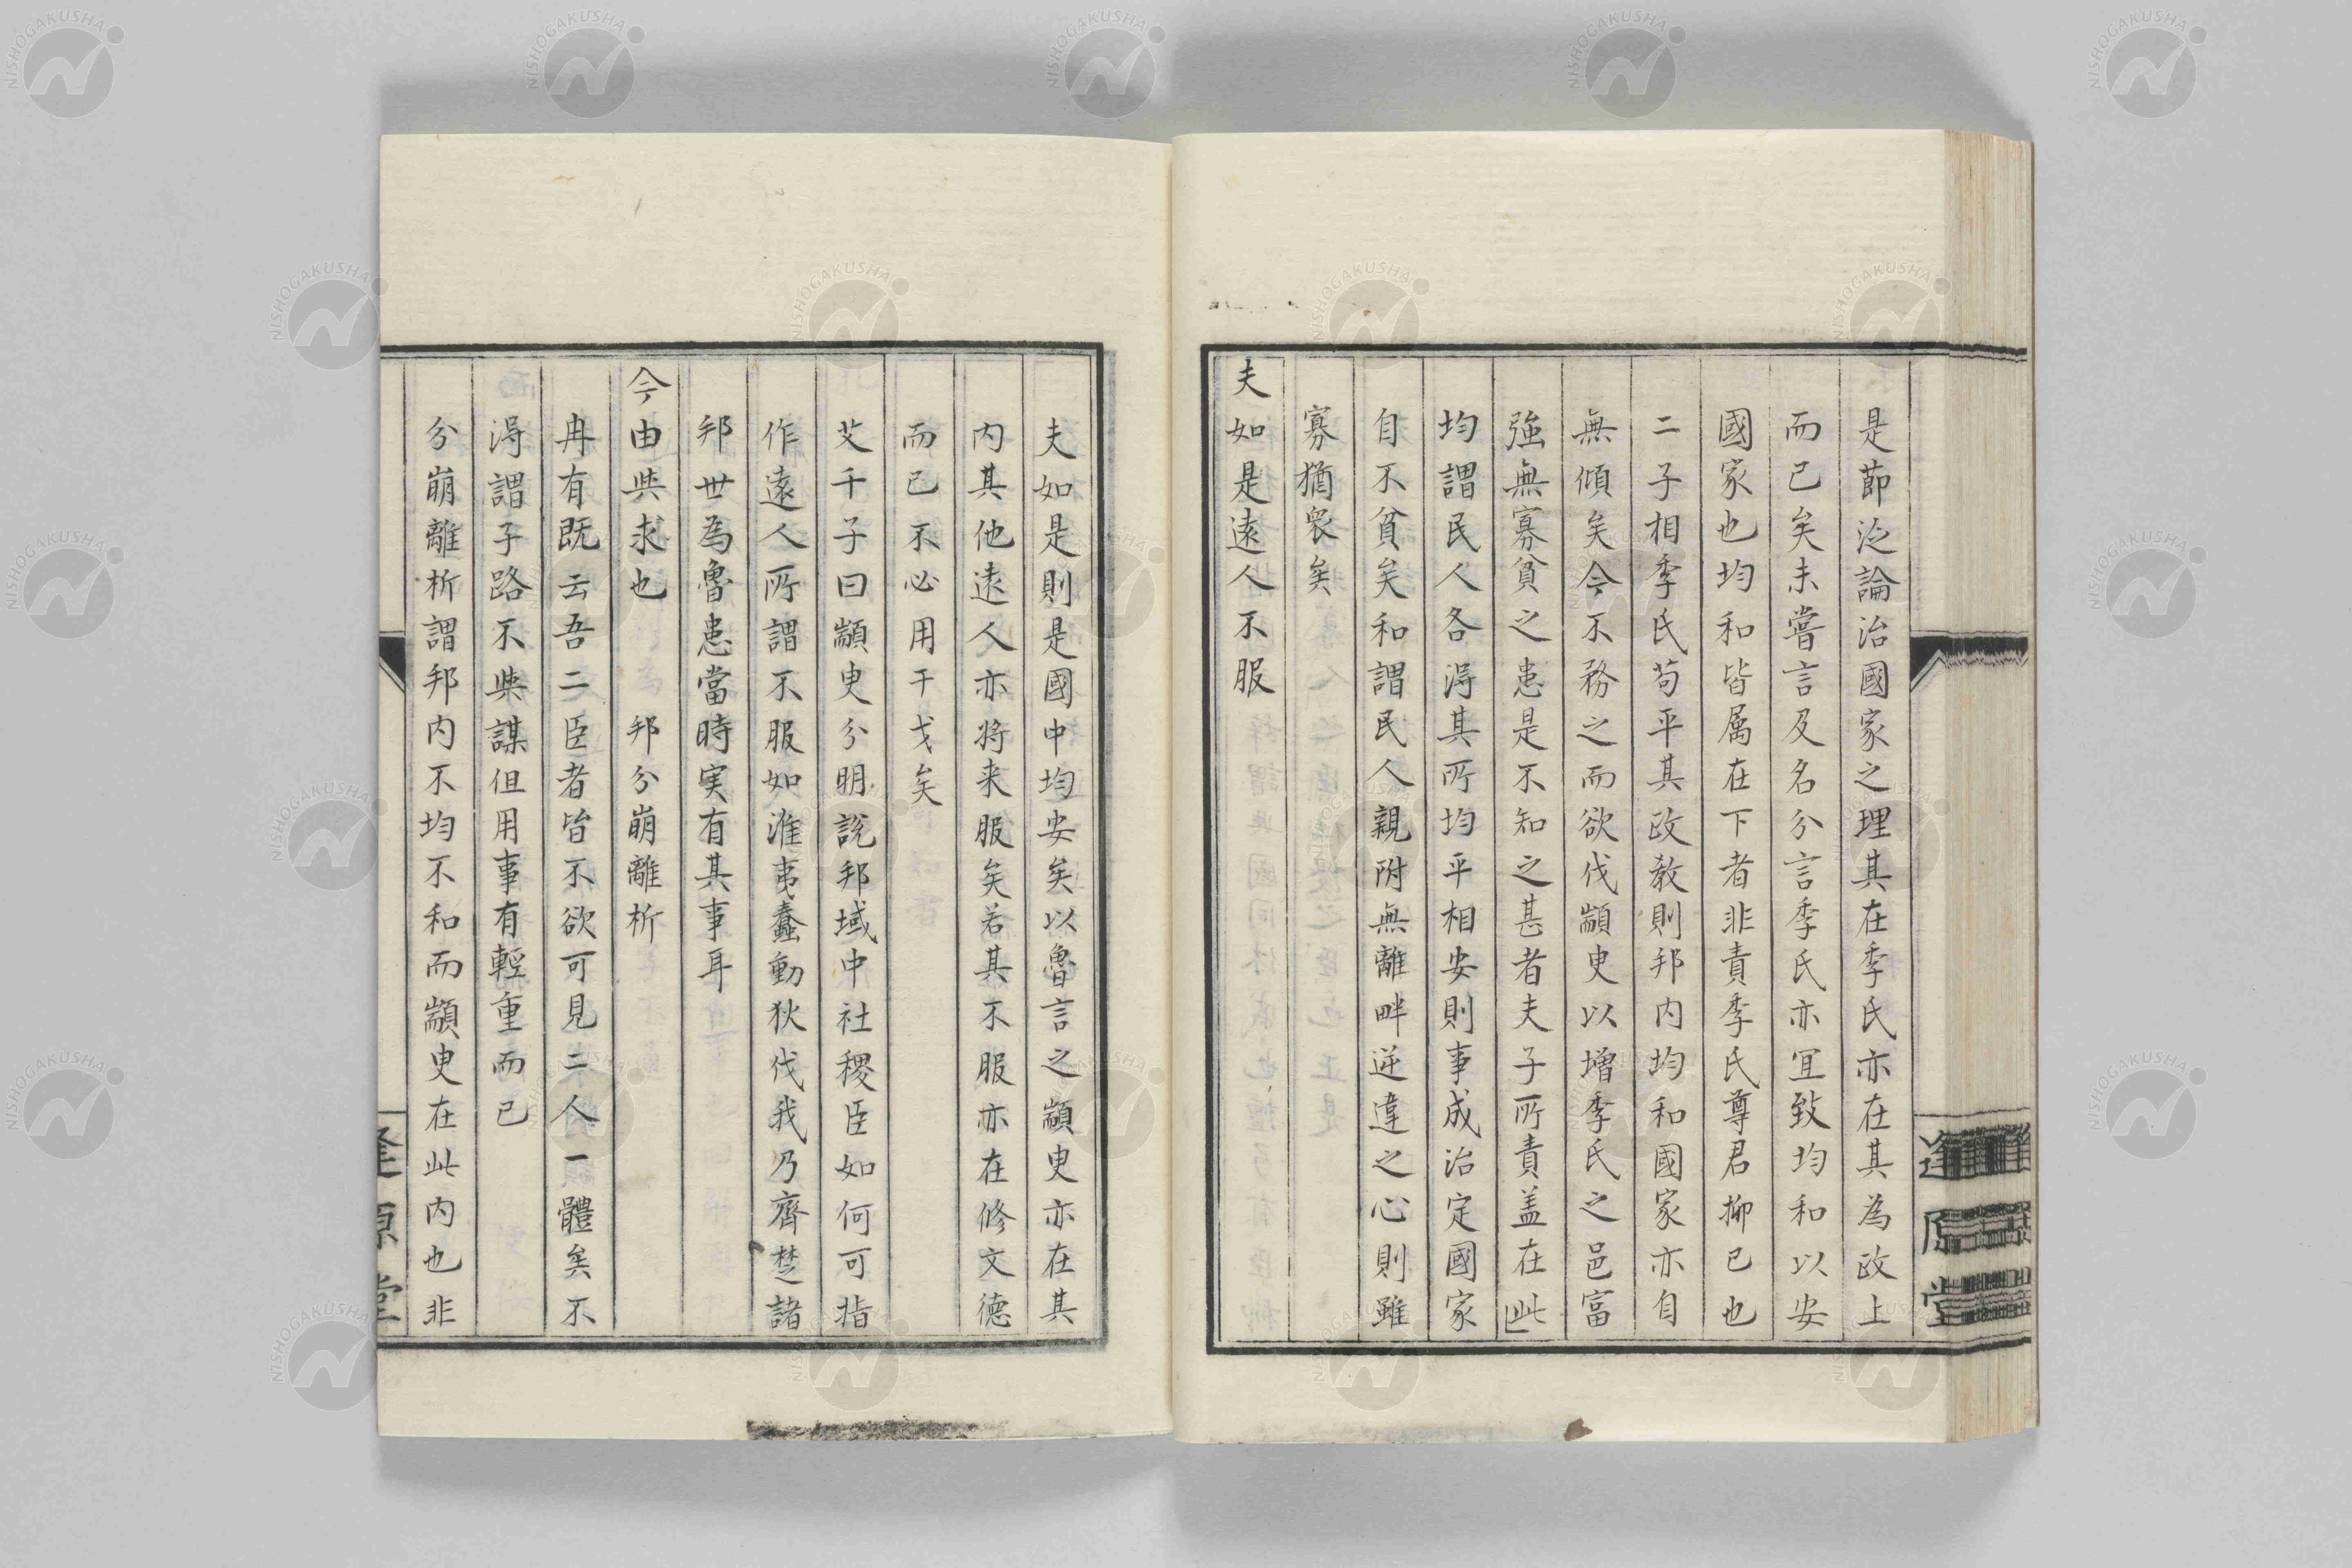 是莭泛論治國家之理其在季氏亦在其為政上
而已矣未嘗言及名分言季氏亦宜致均和以安
國家也均和皆属在下者非責季氏尊君抑已也
二子相季氏苟平其政敎則邦内均和國家亦自
無傾矣今不務之而欲伐顓臾以增季氏之邑富
強無寡貧之患是不知之甚者夫子所責盖在此
均謂民人各淂其所均平相安則事成治定國家
自不貧矣和謂民人親附無離畔逆違之心則雖
寡猶衆矣
夫如是遠人不服
夫如是則是國中均安矣以魯言之顓臾亦在其
内其他遠人亦将来服矣若其不服亦在修文德
而已不必用干戈矣
艾千子曰顓臾分明說邦域中社稷臣如何可指
作遠人所謂不服如淮夷蠢動狄伐我乃齊楚諸
邦世為魯患當時実有其事耳
今由與求也 邦分崩離析
冉有既云吾二臣者皆不欲可見二人一體矣不
淂謂子路不與謀但用事有輕重而已
分崩離析謂邦内不均不和而顓臾在此内也非
逢原堂
逢原堂
NISHOGAKUSHA